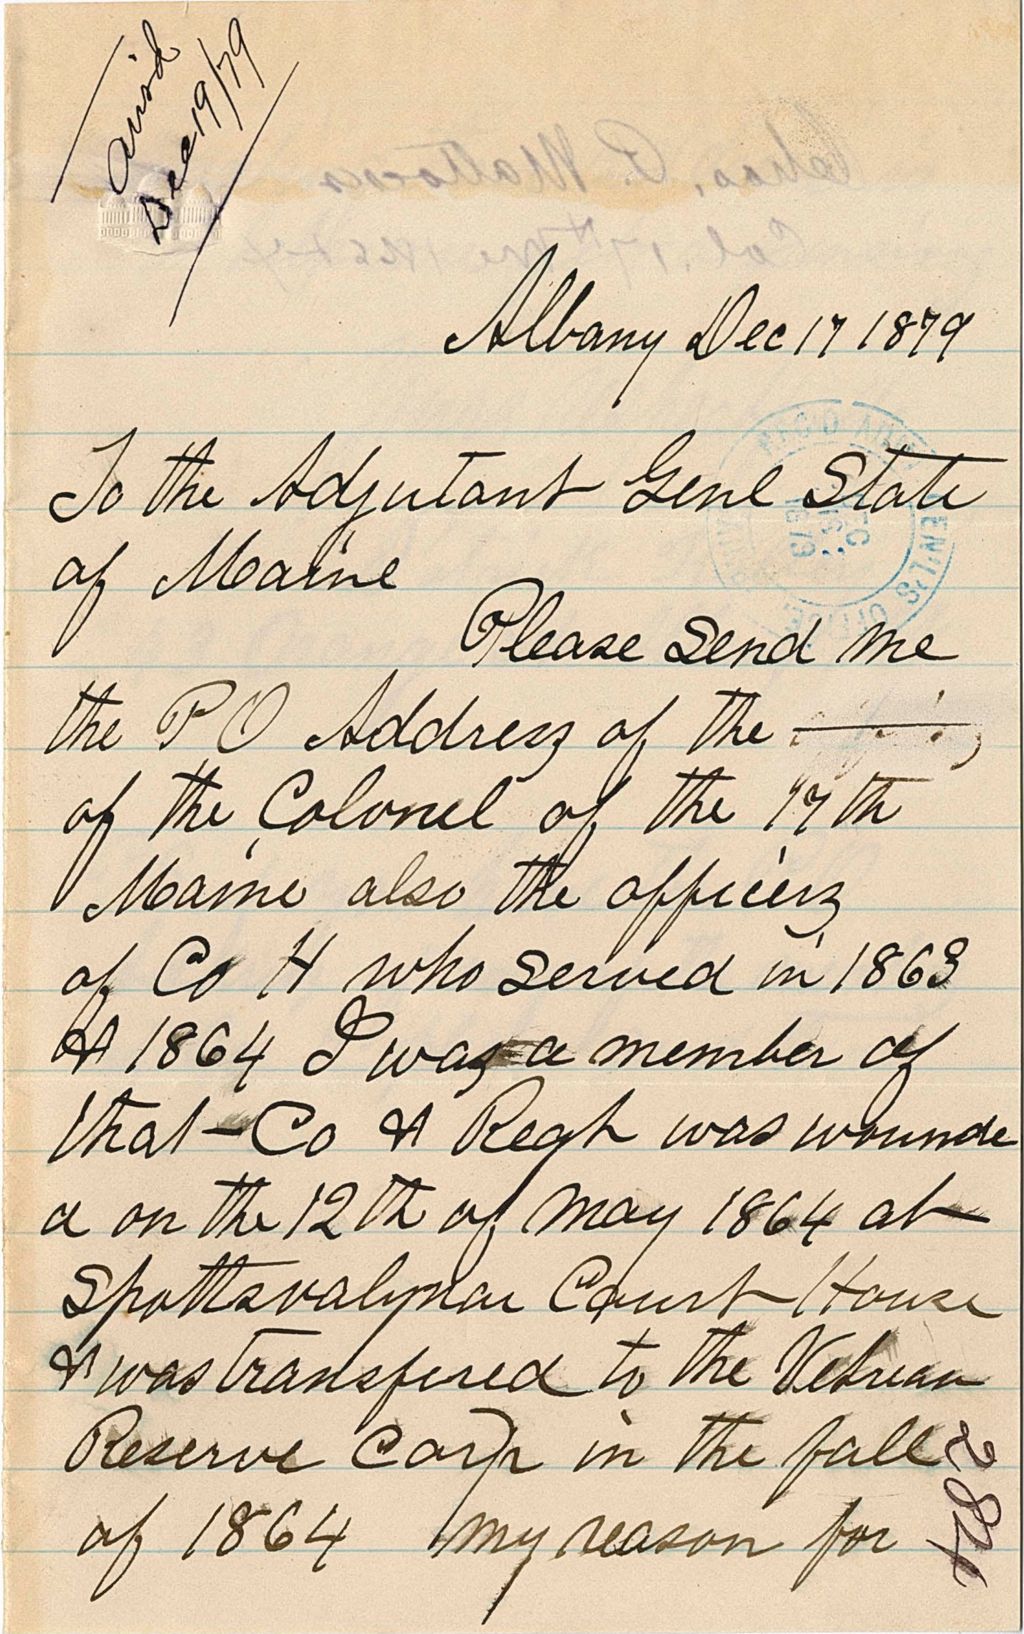 Ans'd
Dec 19/79
Chas. P. Mattocks
Col. 17th Me
Albany Dec 17 1879
To the Adjutant Genl State
of Maine
Please send me
the P O Address of the
of the Colonel of the 17th
Maine also the officers
of Co H who served in 1863
& 1864 I was a member of
that - Co & Regt was wounde
d on the 12th of May 1864 at
Spottsvalynar Court House
& was transfered to the Vetrean
Reserve Corp in the fall
of 1864 my reason for
284
REC'D ADJT GENL'S OFFICE
DEC
1879